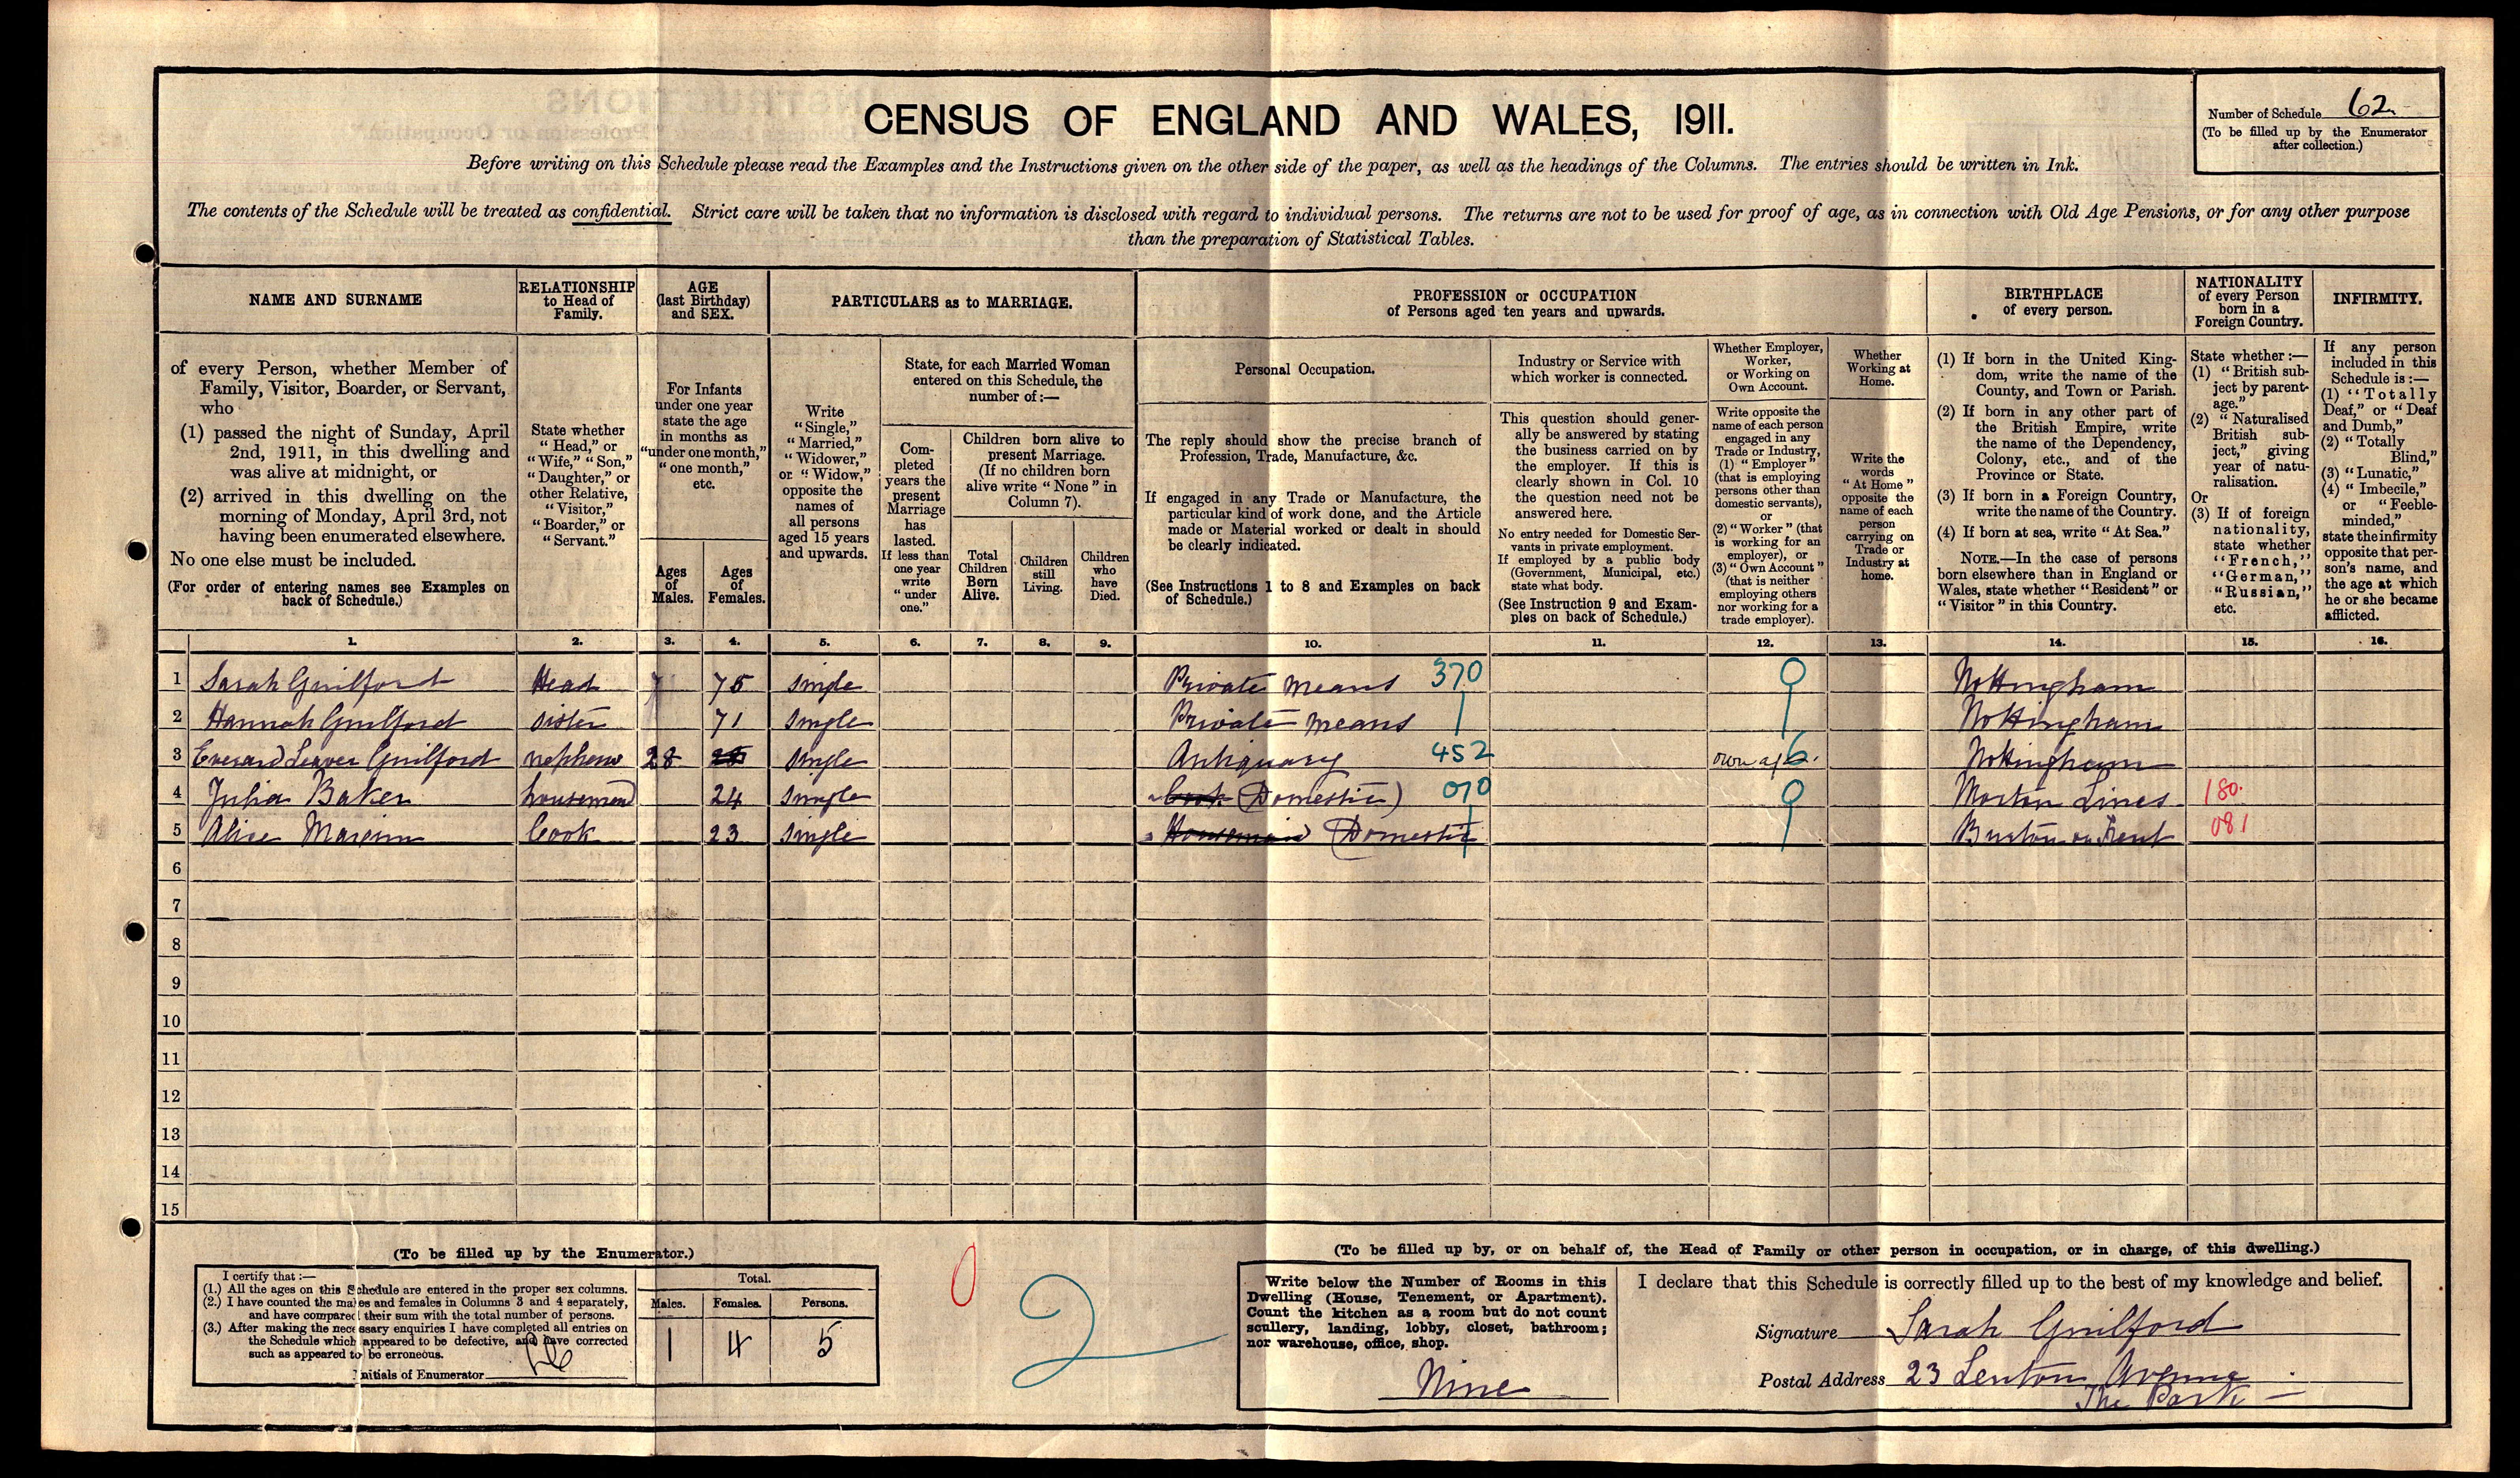 CENSUS OF ENGLAND AND WALES, 1911.
Number of Schedule 62
(To be filled up by the Enumerator
after collection.)
Before writing on this Schedule please read the Examples and the Instructions given on the other side of the paper, as well as the headings of the Columns. The entries should be written in Ink.
The contents of the Schedule will be treated as confidential. Strict care will be taken that no information is disclosed with regard to individual persons. The returns are not to be used for proof of age, as in connection with Old Age Pensions, or for any other purpose
than the preparation of Statistical Tables.
NAME AND SURNAME
of every Person, whether Member of
Family, Visitor, Boarder, or Servant,
who
(1) passed the night of Sunday, April
2nd, 1911, in this dwelling and
was alive at midnight, or
(2) arrived in this dwelling on the
morning of Monday, April 3rd, not
having been enumerated elsewhere.
No one else must be included.
(For order of entering names see Examples on
back of Schedule.)
RELATIONSHIP
to Head of
Family.
State whether
"Head," or
"Wife," "Son,"
"Daughter," or
other Relative,
"Visitor,"
"Boarder," or
"Servant."
AGE
(last Birthday)
and SEX.
For Infants
under one year
state the age
in months as
"under one month,"
"one month,"
etc.
Ages
of
Males.
Ages
of
Females.
PARTICULARS as to MARRIAGE.
Write
"Single,"
"Married,"
"Widower,"
or "Widow,"
opposite the
names of
all persons
aged 15 years
and upwards.
State, for each Married Woman
entered on this Schedule, the
number of:—
Com-
pleted
years the
present
Marriage
has
lasted.
If less than
one year
write
"under
one."
Children born alive to
present Marriage.
(If no children born
alive write "None" in
Column 7).
Total
Children
Born
Alive.
Children
still
Living.
Children
who
have
Died.
PROFESSION or OCCUPATION
of Persons aged ten years and upwards.
Personal Occupation.
The reply should show the precise branch of
Profession, Trade, Manufacture, &c.
If engaged in any Trade or Manufacture, the
particular kind of work done, and the Article
made or Material worked or dealt in should
be clearly indicated.
(See Instructions 1 to 8 and Examples on back
of Schedule.)
Industry or Service with
which worker is connected.
This question should gener-
ally be answered by stating
the business carried on by
the employer. If this is
clearly shown in Col. 10
the question need not be
answered here.
No entry needed for Domestic Ser-
vants in private employment.
If employed by a public body
(Government, Municipal, etc.)
state what body.
(See Instruction 9 and Exam-
ples on back of Schedule.)
Whether Employer,
Worker,
or Working on
Own Account.
Write opposite the
name of each person
engaged in any
Trade or Industry,
(1) "Employer"
(that is employing
persons other than
domestic servants),
or
(2) "Worker" (that
is working for an
employer), or
(3) "Own Account"
(that is neither
employing others
nor working for a
trade employer).
Whether
Working at
Home.
Write the
words
"At Home"
opposite the
name of each
person
carrying on
Trade or
Industry at
home.
BIRTHPLACE
of every person.
(1) If born in the United King-
dom, write the name of the
County, and Town or Parish.
(2) If born in any other part of
the British Empire, write
the name of the Dependency,
Colony, etc., and of the
Province or State.
(3) If born in a Foreign Country,
write the name of the Country.
(4) If born at sea, write "At Sea."
NOTE.—In the case of persons
born elsewhere than in England or
Wales, state whether "Resident" or
"Visitor" in this Country.
NATIONALITY
of every Person
born in a
Foreign Country.
State whether:—
(1) "British sub-
ject by parent-
age."
(2) "Naturalised
British sub-
ject," giving
year of natu-
ralisation.
Or
(3) If of foreign
nationality,
state whether
"French,"
"German,"
"Russian,"
etc.
INFIRMITY.
If any person
included in this
Schedule is:—
(1) "Totally
Deaf," or "Deaf
and Dumb,"
(2) "Totally
Blind,"
(3) "Lunatic,"
(4) "Imbecile,"
or "Feeble-
minded,"
state the infirmity
opposite that per-
son's name, and
the age at which
he or she became
afflicted.
1. 2. 3. 4. 5. 6. 7. 8. 9. 10. 11. 12. 13. 14. 15. 16.
1 Sarah Guilford Head 75 Single Private means 370 0 Nottingham
2 Hannah Guilford Sister 71 Single Private means Nottingham
3 Everard Leaver Guilford nephew 28 Single Antiquary 452 own a/c 6 Nottingham
4 Julia Baker housemaid 24 Single Cook (Domestic) 070 0 Morton Lincs 180.
5 Alice Cook 23 Single Housemaid (Domestic Burton on Trent 081
6
7
8
9
10
11
12
13
14
15
(To be filled up by the Enumerator.)
I certify that:—
(1.) All the ages on this Schedule are entered in the proper sex columns.
(2.) I have counted the males and females in Columns 3 and 4 separately,
and have compared their sum with the total number of persons.
(3.) After making the necessary enquiries I have completed all entries on
the Schedule which appeared to be defective, and have corrected
such as appeared to be erroneous.
Initials of Enumerator
Total.
Males. Females. Persons.
1 4 5
0
2
(To be filled up by, or on behalf of, the Head of Family or other person in occupation, or in charge, of this dwelling.)
Write below the Number of Rooms in this
Dwelling (House, Tenement, or Apartment).
Count the kitchen as a room but do not count
scullery, landing, lobby, closet, bathroom;
nor warehouse, office, shop.
Nine
I declare that this Schedule is correctly filled up to the best of my knowledge and belief.
Signature Sarah Guilford
Postal Address 23 Lenton Avenue
The Park